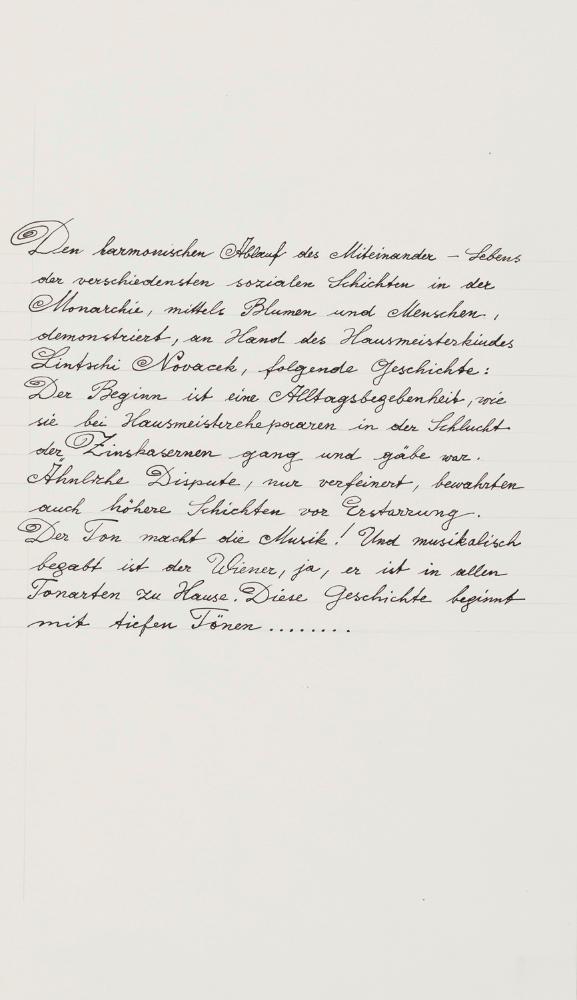 Den harmonischen Ablauf des Miteinander - Lebens
der verschiedensten sozialen Schichten in der
Monarchie, mittels Blumen und Menschen,
demonstriert, an Hand des Hausmeisterkindes
Lintschi Novacek, folgende Geschichte:
Der Beginn ist eine Alltagsbegebenheit, wie
sie bei Hausmeisterehepaaren in der Schlucht
der Zinskasernen gang und gäbe war.
Ähnliche Dispute, nur verfeinert, bewahrten
auch höhere Schichten vor Erstarrung.
Der Ton macht die Musik! Und musikalisch
begabt ist der Wiener, ja, er ist in allen
Tonarten zu Hause. Diese Geschichte beginnt
mit tiefen Tönen ........